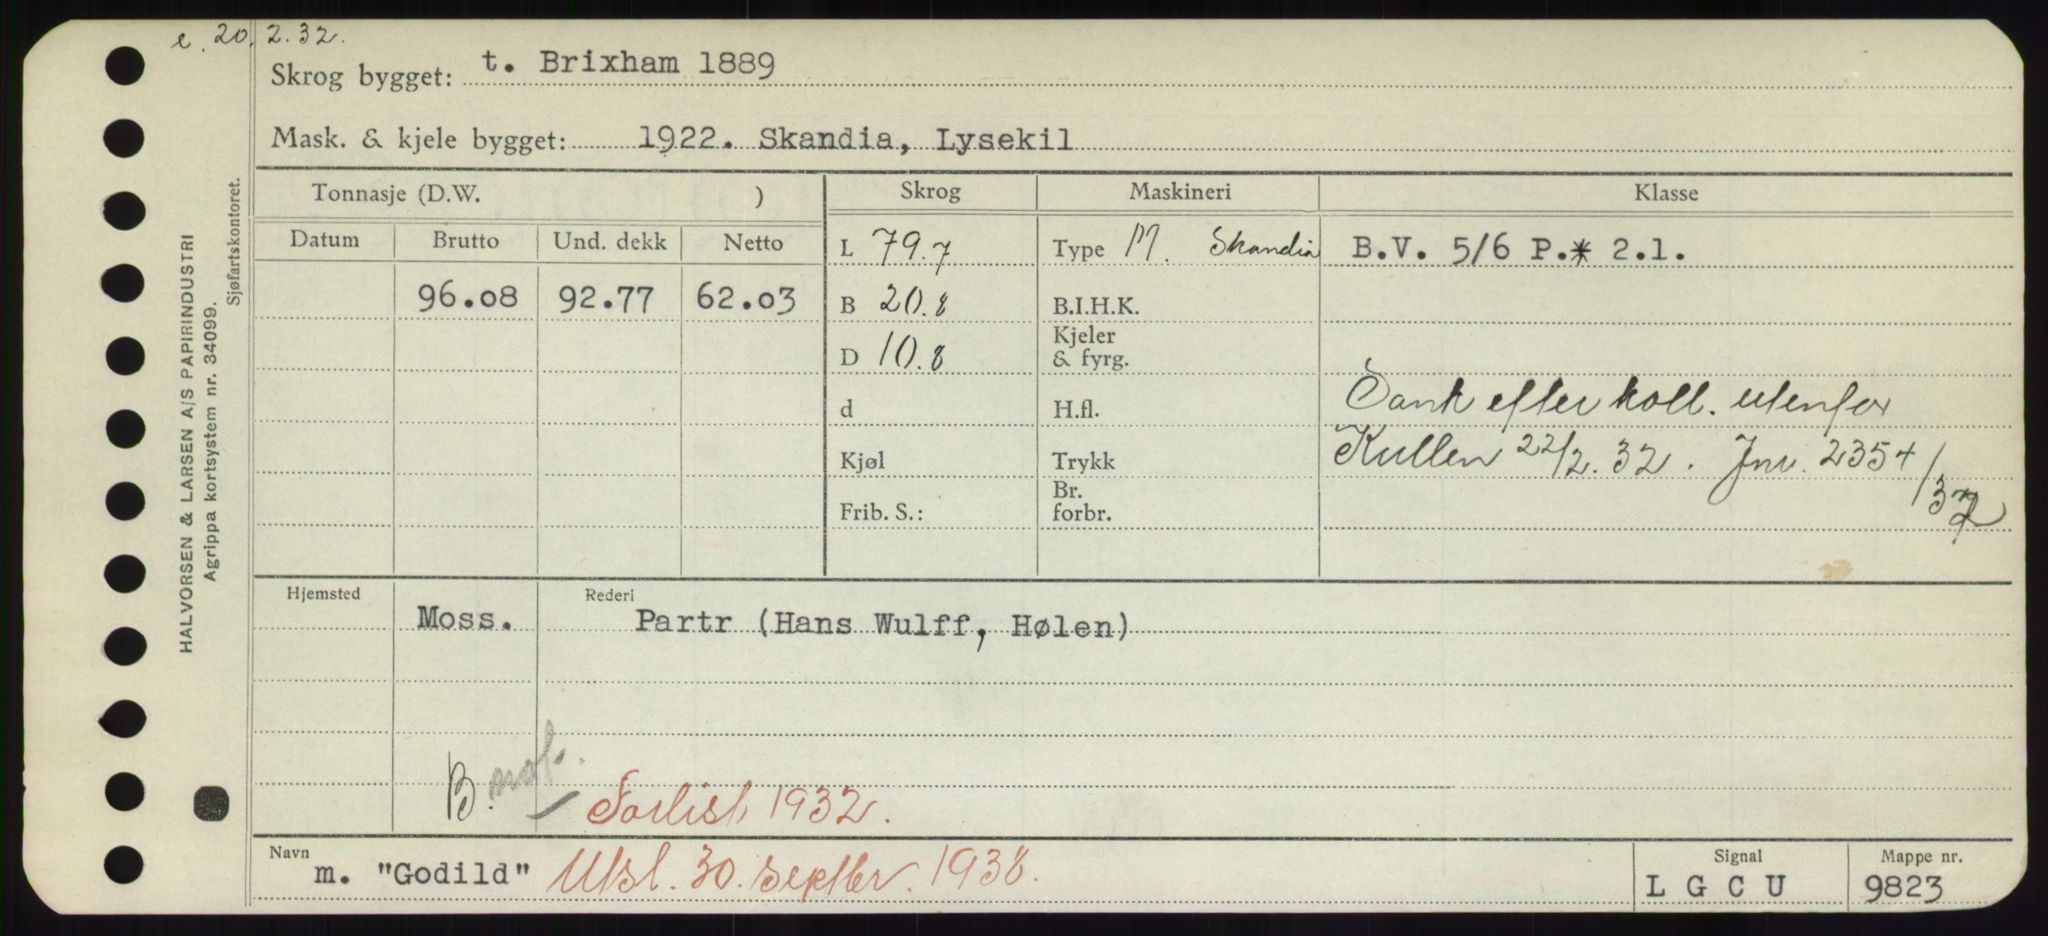 e. 20. 2. 32.
Skrog bygget: t. Brixham 1889
Mask. & kjele bygget: 1922. Skandia, Lysekil
Tonnasje (D.W. ) Skrog Maskineri Klasse
Datum Brutto Und. dekk Netto L 79.7 Type M. Skandia B.V. 5/6 P.* 2.1.
96.08 92.77 62.03 B 20.8 B.I.H.K.
D 10.8 Kjeler & fyrg.
d H.fl. Sank efter koll. utenfor
Kjøl Trykk Kullen 22/2. 32. Jnr. 2354/32
Frib. S.: Br. forbr.
Hjemsted Moss. Rederi Partr (Hans Wulff, Hølen)
B.
Forlist 1932.
Navn m. "Godild" Utsl. 30. septbr. 1938. Signal L G C U Mappe nr. 9823
HALVORSEN & LARSEN A/S PAPIRINDUSTRI
Agrippa kortsystem nr. 34099.
Sjøfartskontoret.